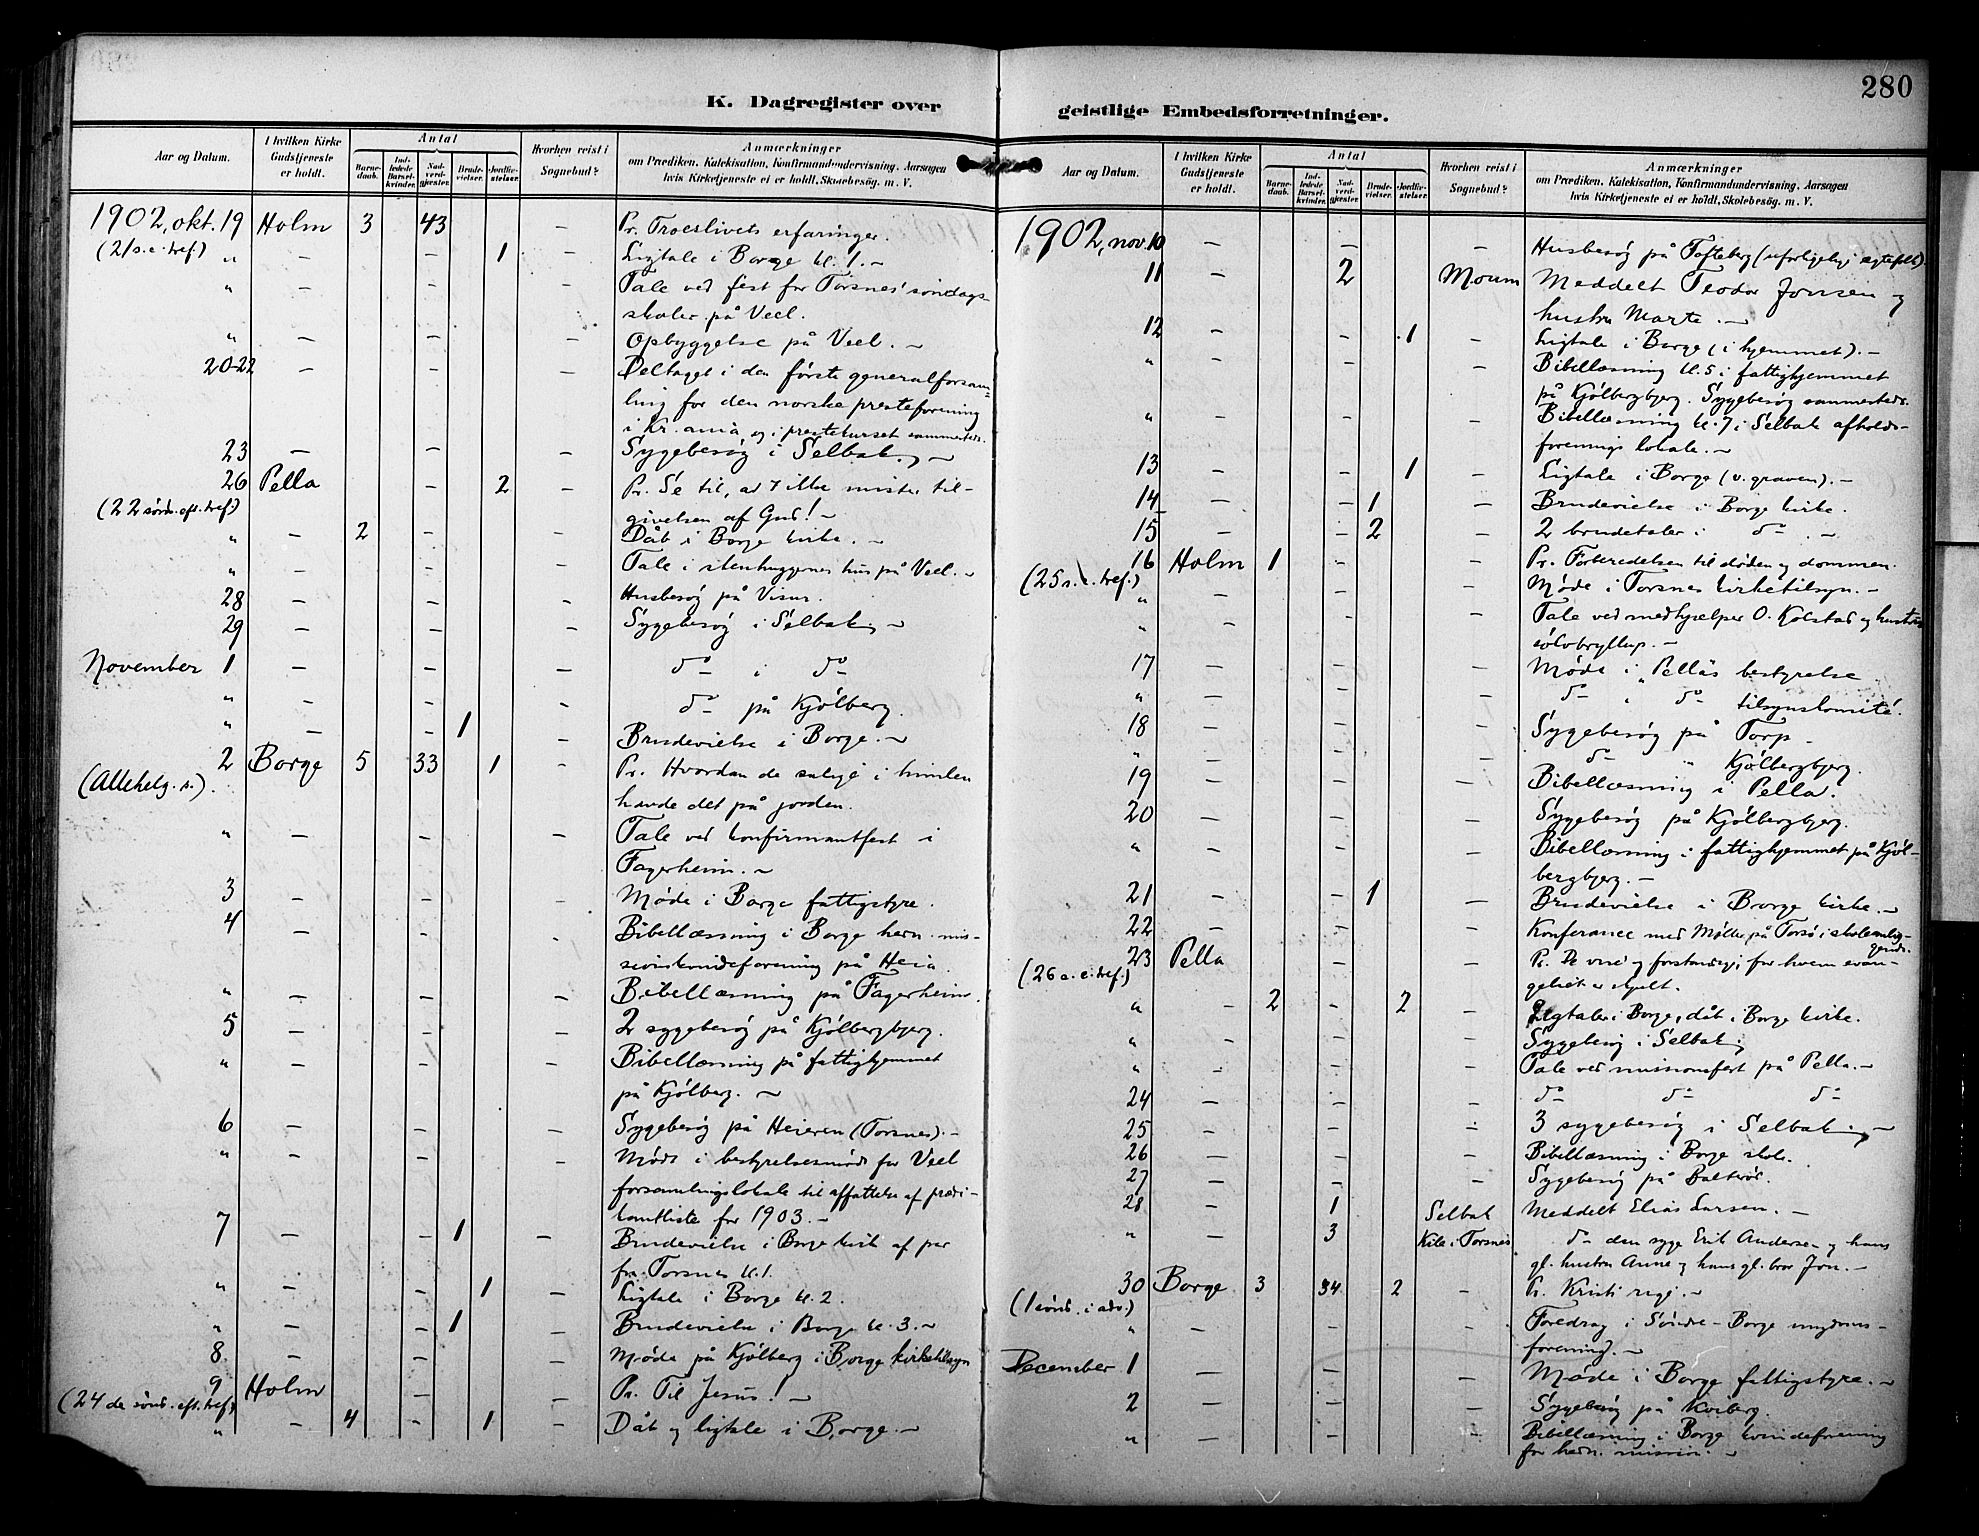 280
K. Dagregister over
geistlige Embedsforretninger.
Aar og Datum.
I hvilken Kirke Gudstjeneste er holdt.
Antal
Barnedaab.
Indledede Barselkvinder.
Nadverdgjester.
Brudevielser.
Jordfæstelser.
Hvorhen reist i Sognebud?
Anmærkninger
om Prædiken, Katekisation, Konfirmandundervisning, Aarsagen
hvis Kirketjeneste ei er holdt, Skolebesøg, m. V.
1902, okt. 19 Holm 3 43 — Pr. Troeslivets erfaringer.
(21 s. e. tref.) „ — — 1 — Ligtale i Borge kl. 1. —
„ — — — Tale ved fest for Torsnes' søndags-
skoler på Veel.
„ — — — Opbyggelse på Veel. —
20-22 — — — Deltaget i den første generalforsam=
ling for den norske presteforening
i Kr.ania og i prestekurset sammesteds.
23 — — — Sygebesøg i Selbak. —
26 Pella — 2 — Pr. Se til, at I ikke mister til-
(22 sønd. eft. tref.) givelsen af Gud! —
„ — 2 — — Dåb i Borge kirke. —
„ — — — Tale i stenhuggernes hus på Veel. —
28 — — — Husbesøg på Visur.
29 — — — Sygebesøg i Selbak. —
November 1 — — — do i do
„ — — — do på Kjölberg.
„ — — 1 — Brudevielse i Borge. —
2 Borge 5 33 1 — Pr. Hvordan de salige i himlen
(Allehelg. s.) havde det på jorden.
„ — — — Tale ved konfirmantfest i
Fagerheim. —
3 — — — Møde i Borge fattigstyre.
4 — — — Bibellæsning i Borge hedn. mis-
sionskvindeforening på Heia.
„ — — — Bibellæsning på Fagerheim.
5 — — — 2 sygebesøg på Kjölbergbjerg.
„ — — — Bibellæsning på fattighjemmet
på Kjölberg. —
6 — — — Sygebesøg på Heieren (Torsnes). —
„ — — — Møde i bestyrelsesmøde for Veel
forsamlingslokale til affattelse af prædi-
kantliste for 1903. —
7 — — 1 — Brudevielse i Borge kirke af par
fra Torsnes kl. 1.
„ — — 1 — Ligtale i Borge kl. 2.
„ — — 1 — Brudevielse i Borge kl. 3. —
8 — — — Møde på Kjölberg i Borge kirketilsyn
9 Holm — — Pr. Til Jesus! —
(24 de sönd. eft. tref.)
„ — 4 — 1 — Dåb og ligtale i Borge. —
Aar og Datum.
I hvilken Kirke Gudstjeneste er holdt.
Antal
Barnedaab.
Indledede Barselkvinder.
Nadverdgjester.
Brudevielser.
Jordfæstelser.
Hvorhen reist i Sognebud?
Anmærkninger
om Prædiken, Katekisation, Konfirmandundervisning, Aarsagen
hvis Kirketjeneste ei er holdt, Skolebesøg, m. V.
1902, nov. 10 — — — Husbesøg på Tofteberg (uforligelig ægtefolk).
11 — 2 Moum Meddelt Teodor Jensen og
hustru Marte. —
12 — — 1 — Ligtale i Borge (i hjemmet). —
„ — — — Bibellæsning kl. 5 i fattighjemmet
på Kjölbergbjerg. Sygebesøg sammesteds.
„ — — — Bibellæsning kl. 7 i Selbak afholds-
forenings lokale. —
13 — — 1 — Ligtale i Borge (v. graven). —
14 — — 1 — Brudevielse i Borge kirke.
15 — — 2 — 2 brudetaler i do. —
16 Holm 1 — — Pr. Forberedelsen til döden og dommen.
(25 s. e. tref.) „ — — — Møde i Torsnes kirketilsyn. —
„ — — — Tale ved medhjælper O. Kolstad og hustrus
sölvbryllup. —
17 — — — Møde i Pellas bestyrelse
„ — — — do „ do tilsynskomité.
18 — — — Sygebesøg på Torp —
„ — — — do „ Kjölbergbjerg.
19 — — — Bibellæsning i Pella.
20 — — — Sygebesøg på Kjölbergbjerg.
„ — — — Bibellæsning i fattighjemmet på Kjöl-
bergbjerg. —
21 — — 1 — Brudevielse i Borge kirke. —
22 — — — Konferance med Møller på Torsö i skoleanlig-
gende.
23 Pella — — Pr. De vise og forstandige, for hvem evan-
(26 s. e. tref.) geliet er skjult.
„ — 2 — 2 — Ligtaler i Borge, dåb i Borge kirke.
„ — — — Sygebesøg i Selbak.
„ — — — Tale ved missionsfest på Pella. —
24 — — — do do do
25 — — — 3 sygebesøg i Selbak. —
26 — — — Bibellæsning i Borge skole.
27 — — — Sygebesøg på
28 — 1 Selbak Meddelt Elias Larsen. —
„ — 3 Kile i Torsnes do den syge Erik Andersen og hans
gl. hustru Anne og hans gl. bror Jon. —
30 Borge 3 34 2 — Pr. Kristi rige. —
(1 sönd. i adv.)
„ — — Foredrag i Söndre-Borge ungdoms-
forening. —
December 1 — — — Møde i Borge fattigstyre. —
2 — — — Sygebesøg på
„ — — — Bibellæsning i Borge kvindeforening
for hedn. mission. —